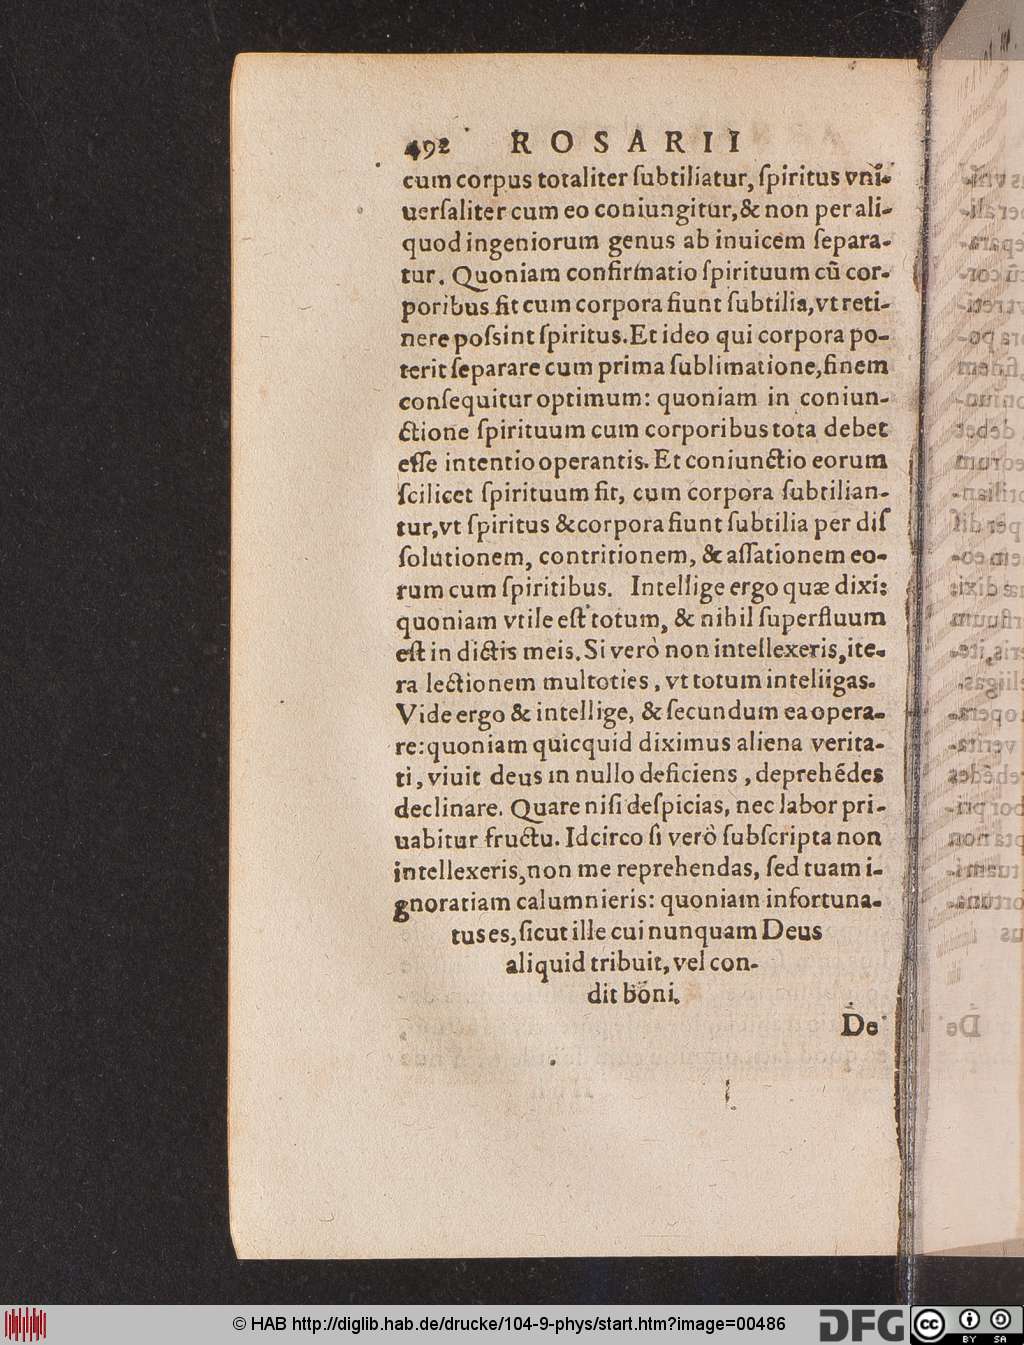 492 ROSARII
cum corpus totaliter ſubtiliatur, ſpiritus vni-
uerſaliter cum eo coniungitur, & non per ali-
quod ingeniorum genus ab inuicem ſepara-
tur. Quoniam confirmatio ſpirituum cũ cor-
poribus fit cum corpora fiunt ſubtilia, vt reti-
nere poſsint ſpiritus. Et ideo qui corpora po-
terit ſeparare cum prima ſublimatione, finem
conſequitur optimum: quoniam in coniun-
ctione ſpirituum cum corporibus tota debet
eſſe intentio operantis. Et coniunctio eorum
ſcilicet ſpirituum fit, cum corpora ſubtilian-
tur, vt ſpiritus & corpora fiunt ſubtilia per diſ
ſolutionem, contritionem, & aſſationem eo-
rum cum ſpiritibus. Intellige ergo quæ dixi:
quoniam vtile eſt totum, & nihil ſuperfluum
eſt in dictis meis. Si verò non intellexeris, ite-
ra lectionem multoties, vt totum inteliigas.
Vide ergo & intellige, & ſecundum ea opera-
re: quoniam quicquid diximus aliena verita-
ti, viuit deus in nullo deficiens, deprehédes
declinare. Quare niſi deſpicias, nec labor pri-
uabitur fructu. Idcirco ſi verò ſubſcripta non
intellexeris, non me reprehendas, ſed tuam i-
gnoratiam calumnieris: quoniam infortuna-
tus es, ſicut ille cui nunquam Deus
aliquid tribuit, vel con-
dit boni.
De
© HAB http://diglib.hab.de/drucke/104-9-phys/start.htm?image=00486
DFG
cc
BY SA